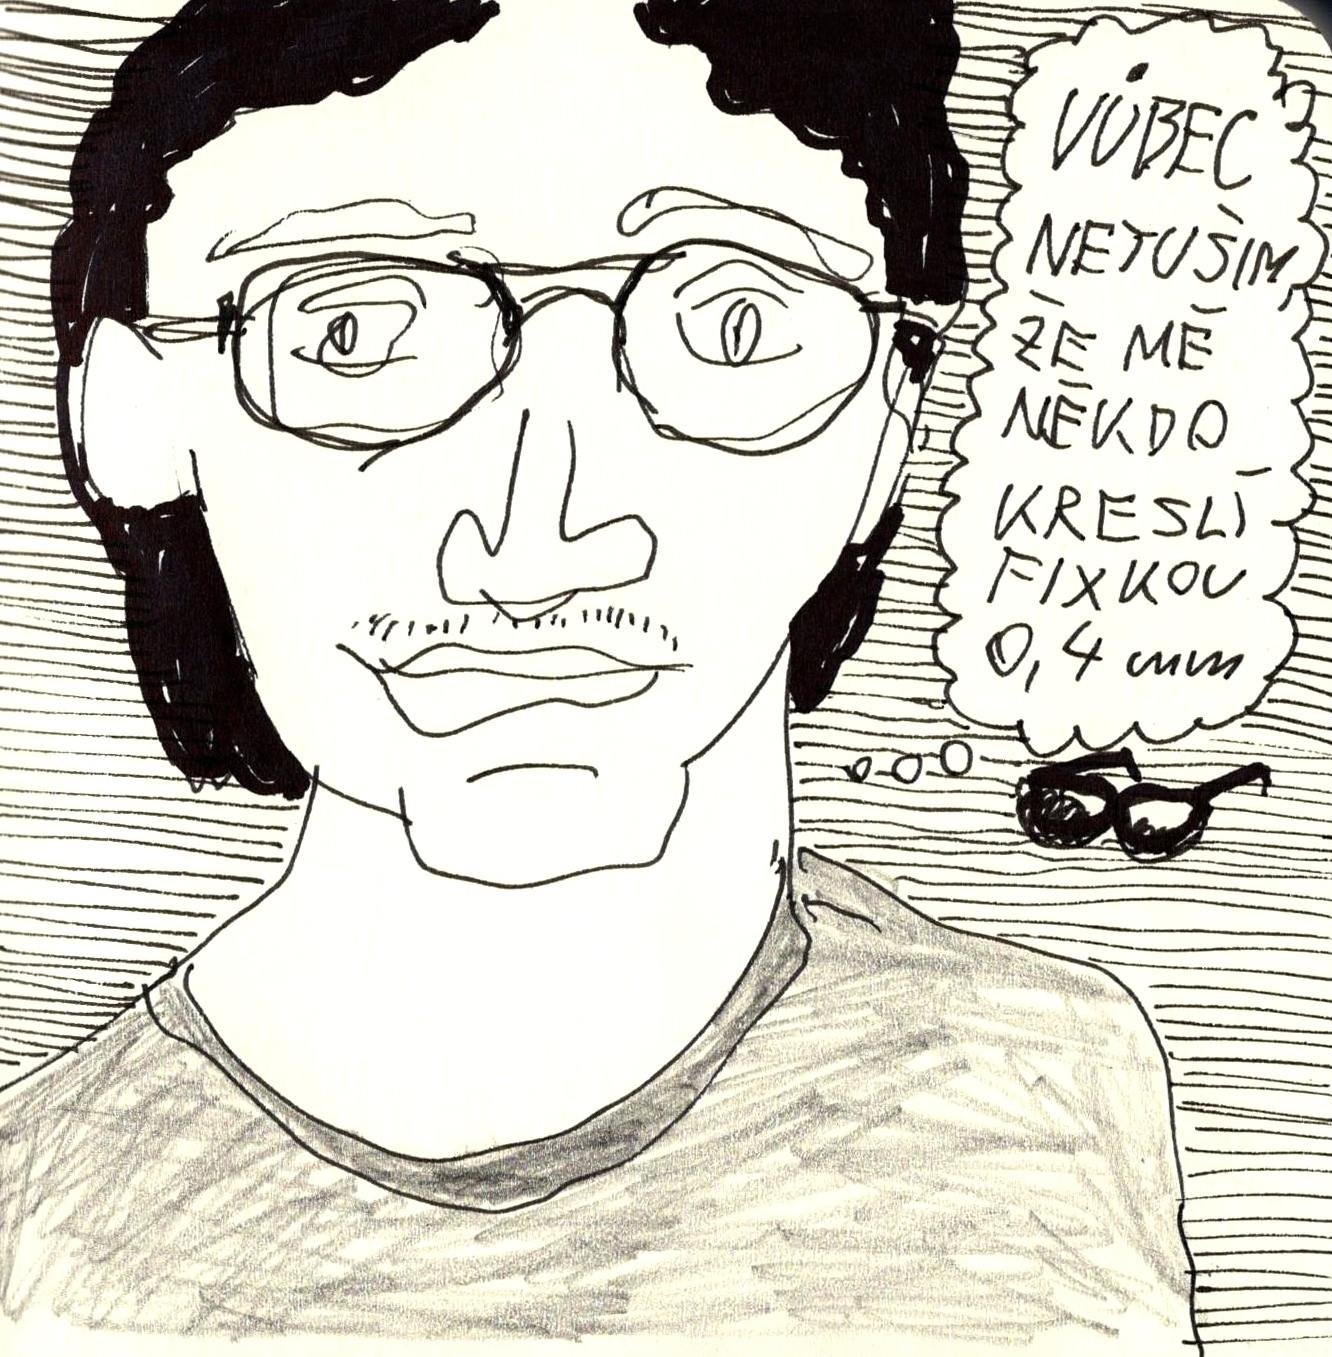 VŮBEC
NETUŠIM,
ŽE MĚ
NĚKDO
KRESLÍ
FIXKOU
0,4 mm